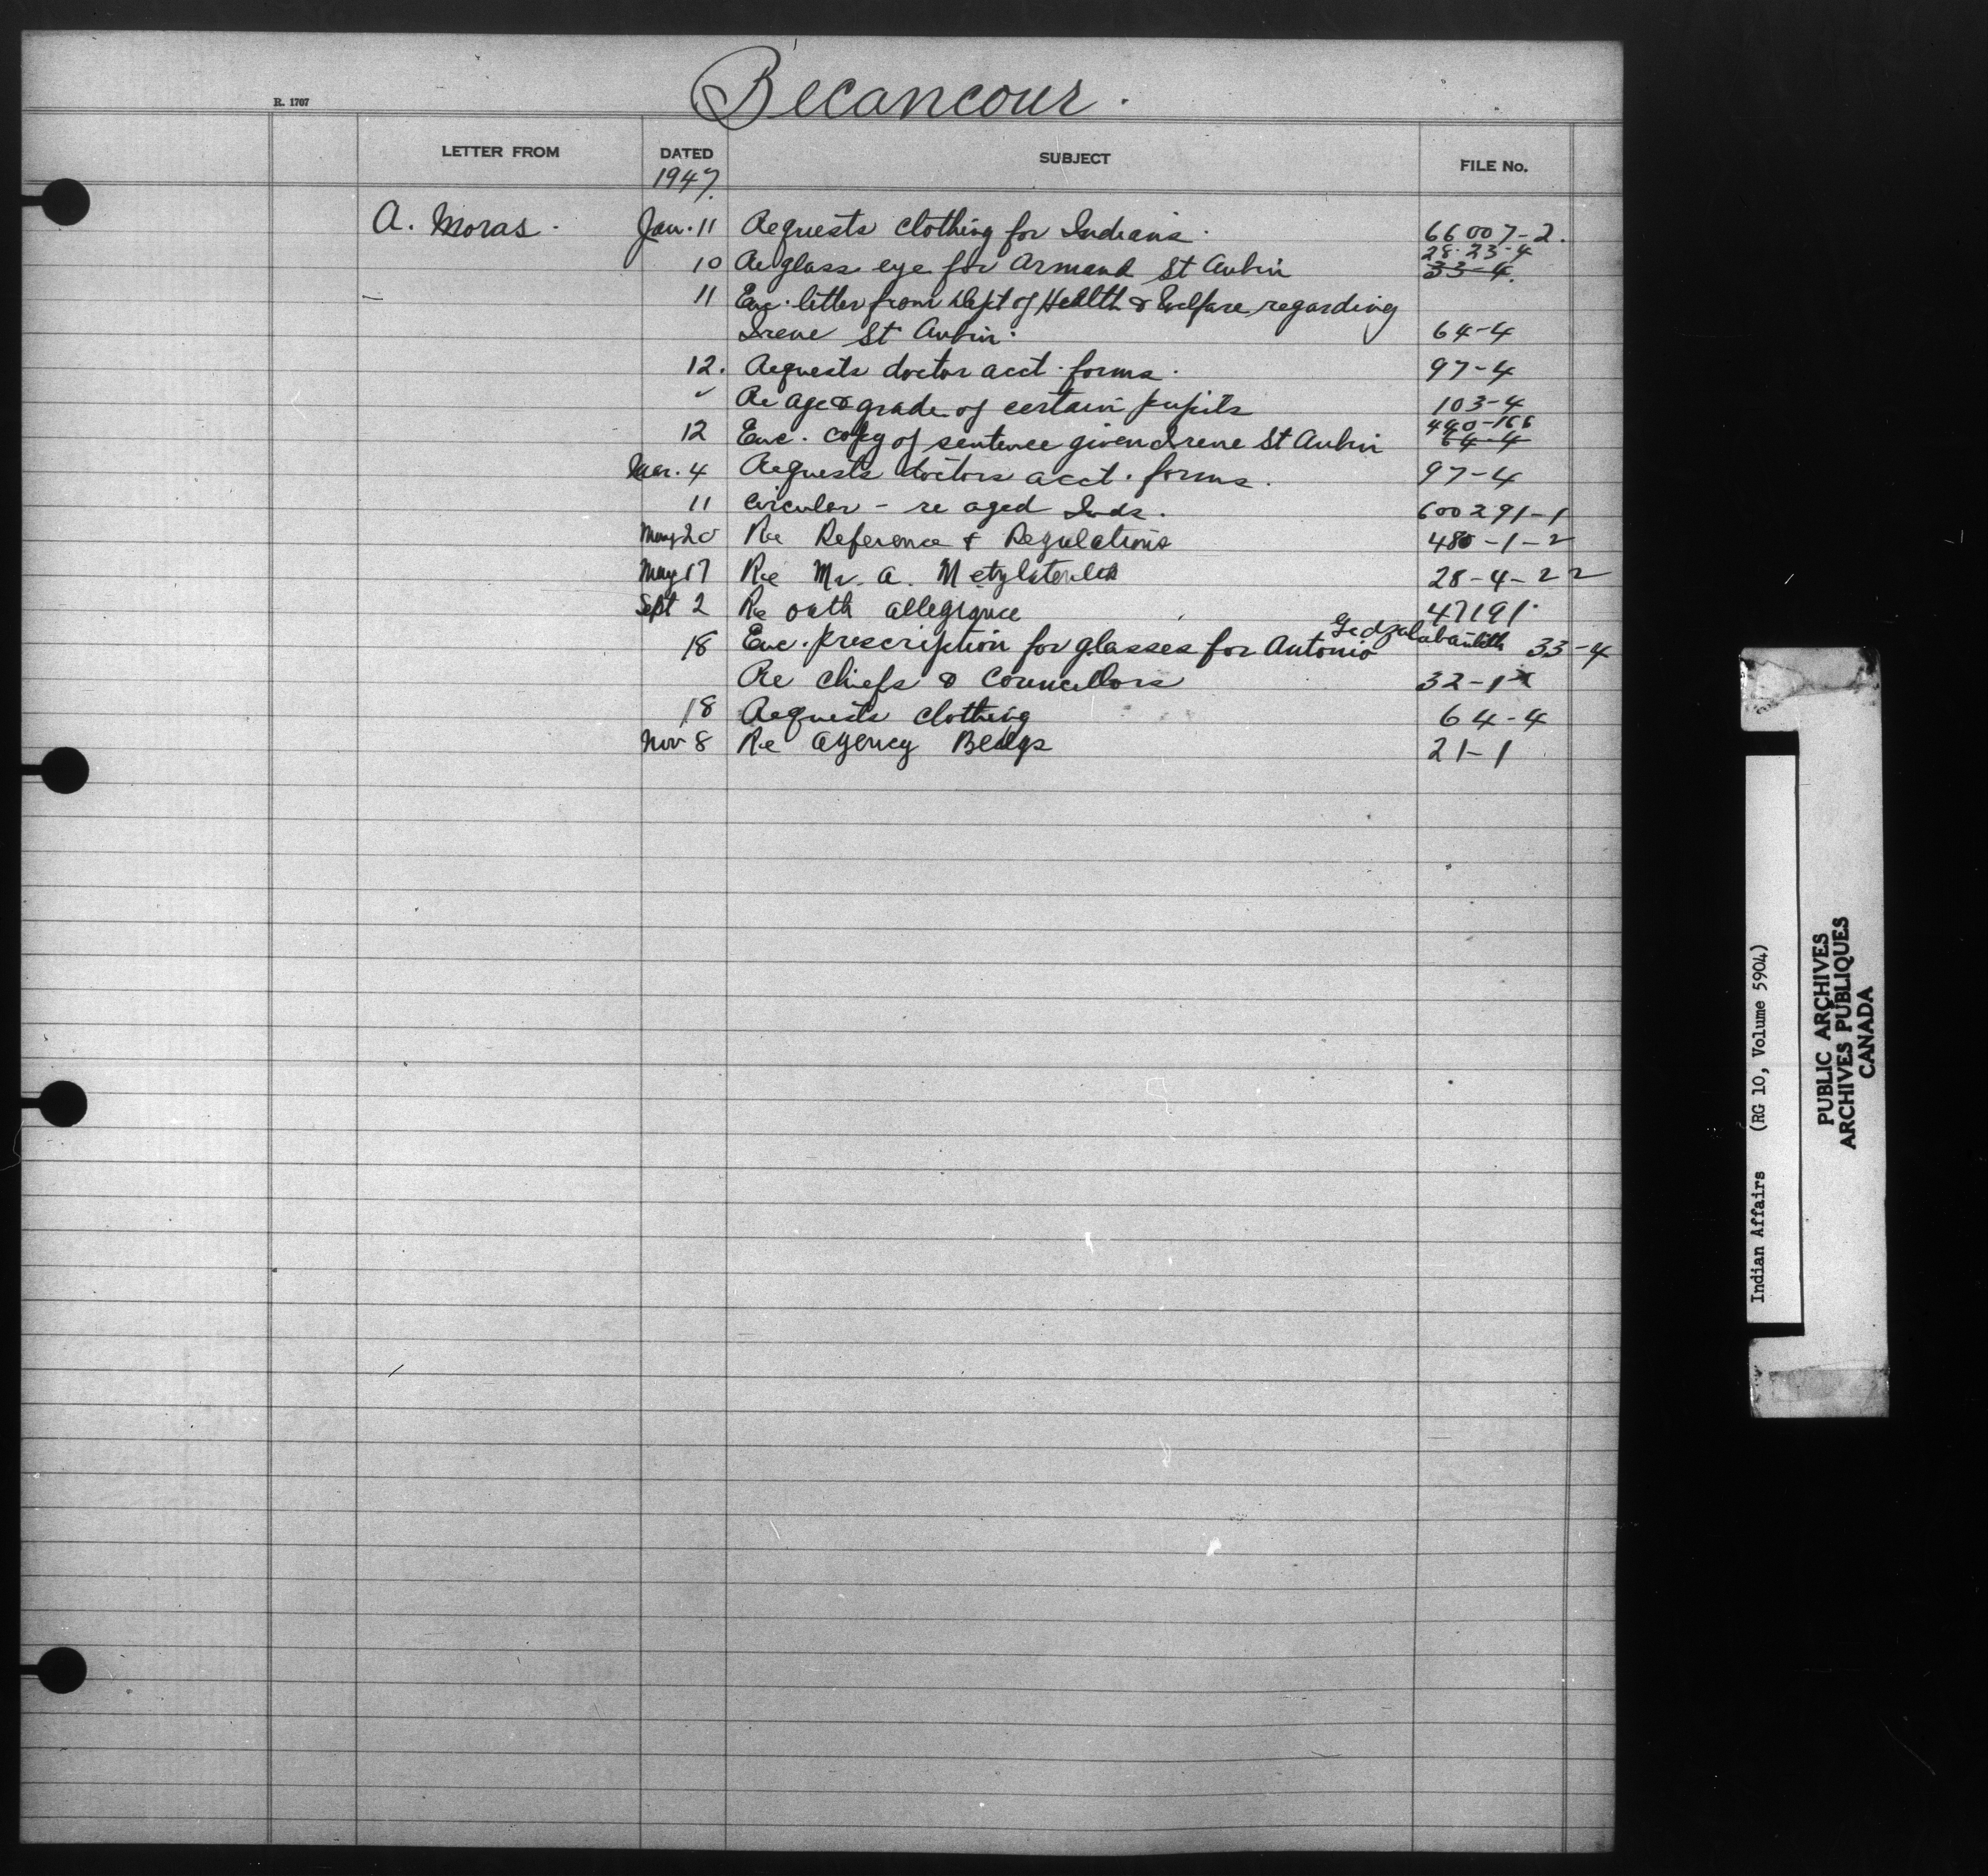 Becancour.
R. 1707
LETTER FROM DATED SUBJECT FILE No.
1947.
A. Moras. Jan. 11 Requests clothing for Indians. 66007-2.
28-23-4
10 Re glass eye for Armand St Aubin 33-4.
11 Enc. letter from Dept of Health & Welfare regarding
Irene St Aubin. 64-4
12. Requests doctor acct. forms. 97-4
" Re age & grade of certain pupils 103-4
440-166
12 Enc. copy of sentence given Irene St Aubin 64-4
Mar. 4 Requests doctors acct. forms. 97-4
11 Circular - re aged Inds. 600291-1
May 20 Re Reference & Regulations 480-1-2
May 17 Re Mr. A. 28-4-22
Sept 2 Re oath allegiance 47191
18 Enc. prescription for glasses for Antonio 33-4
Re Chiefs & Councillors 32-1
18 Requests clothing 64-4
Nov 8 Re Agency Bldgs 21-1
Indian Affairs (RG 10, Volume 5904)
PUBLIC ARCHIVES
ARCHIVES PUBLIQUES
CANADA